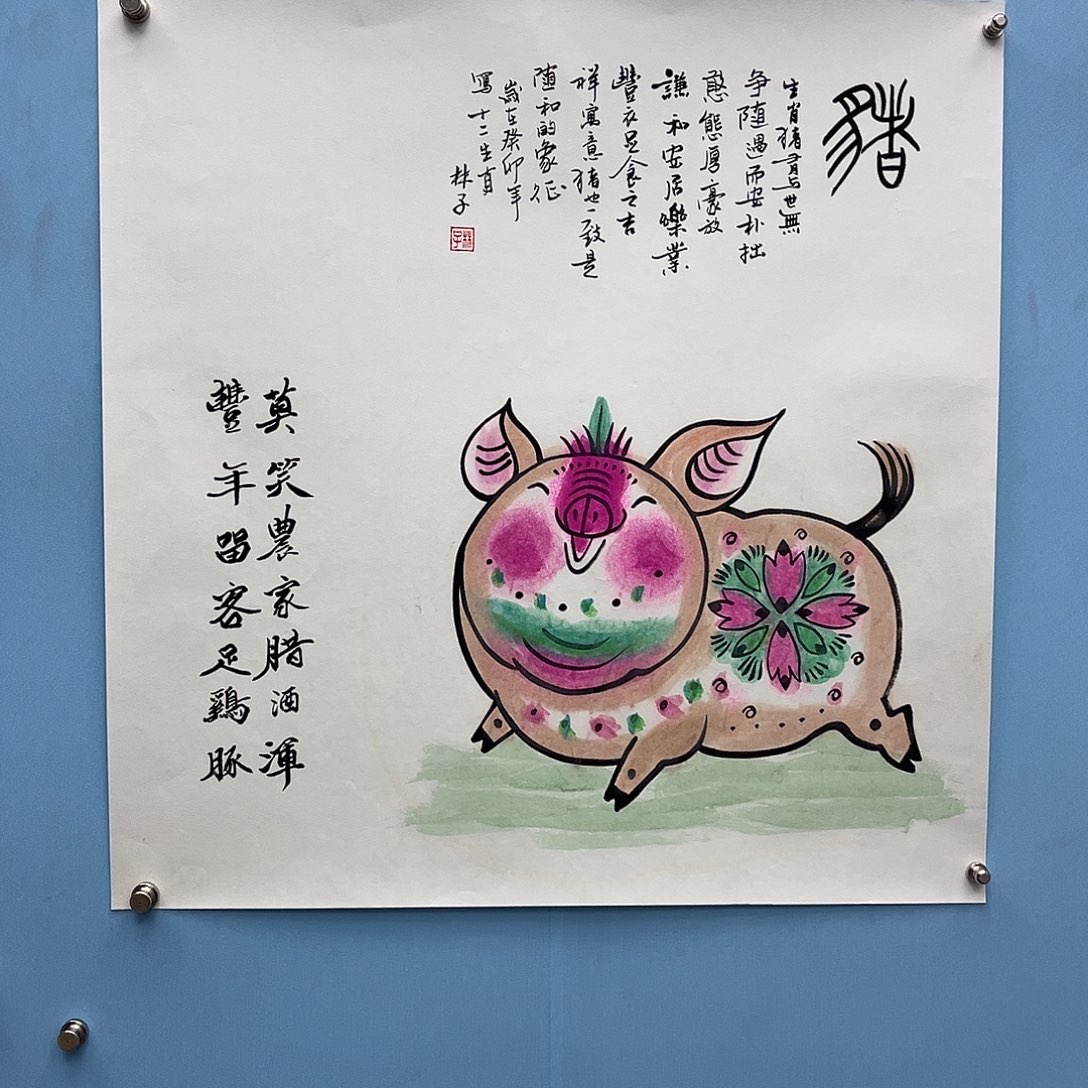 豬
生肖猪有与世無
争隨遇而安朴拙
憨態厚豪放
謙和安居樂業
豐衣足食之吉
祥寓意猪也一致是
随和的象征
歲在癸卯年
寫十二生肖
林子
林子
莫笑農家腊酒渾
豐年留客足鷄豚